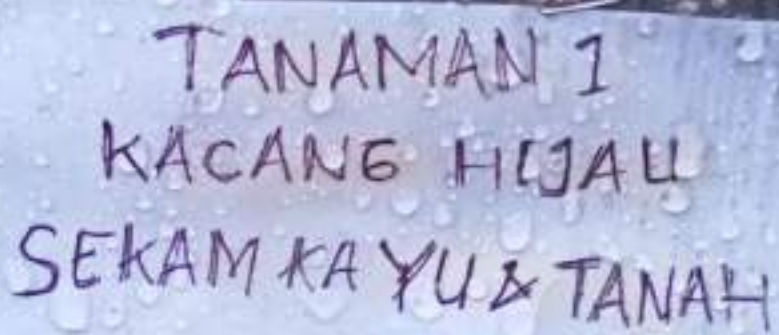 TANAMAN 1
KACANG HIJAU
SEKAM KAYU & TANAH